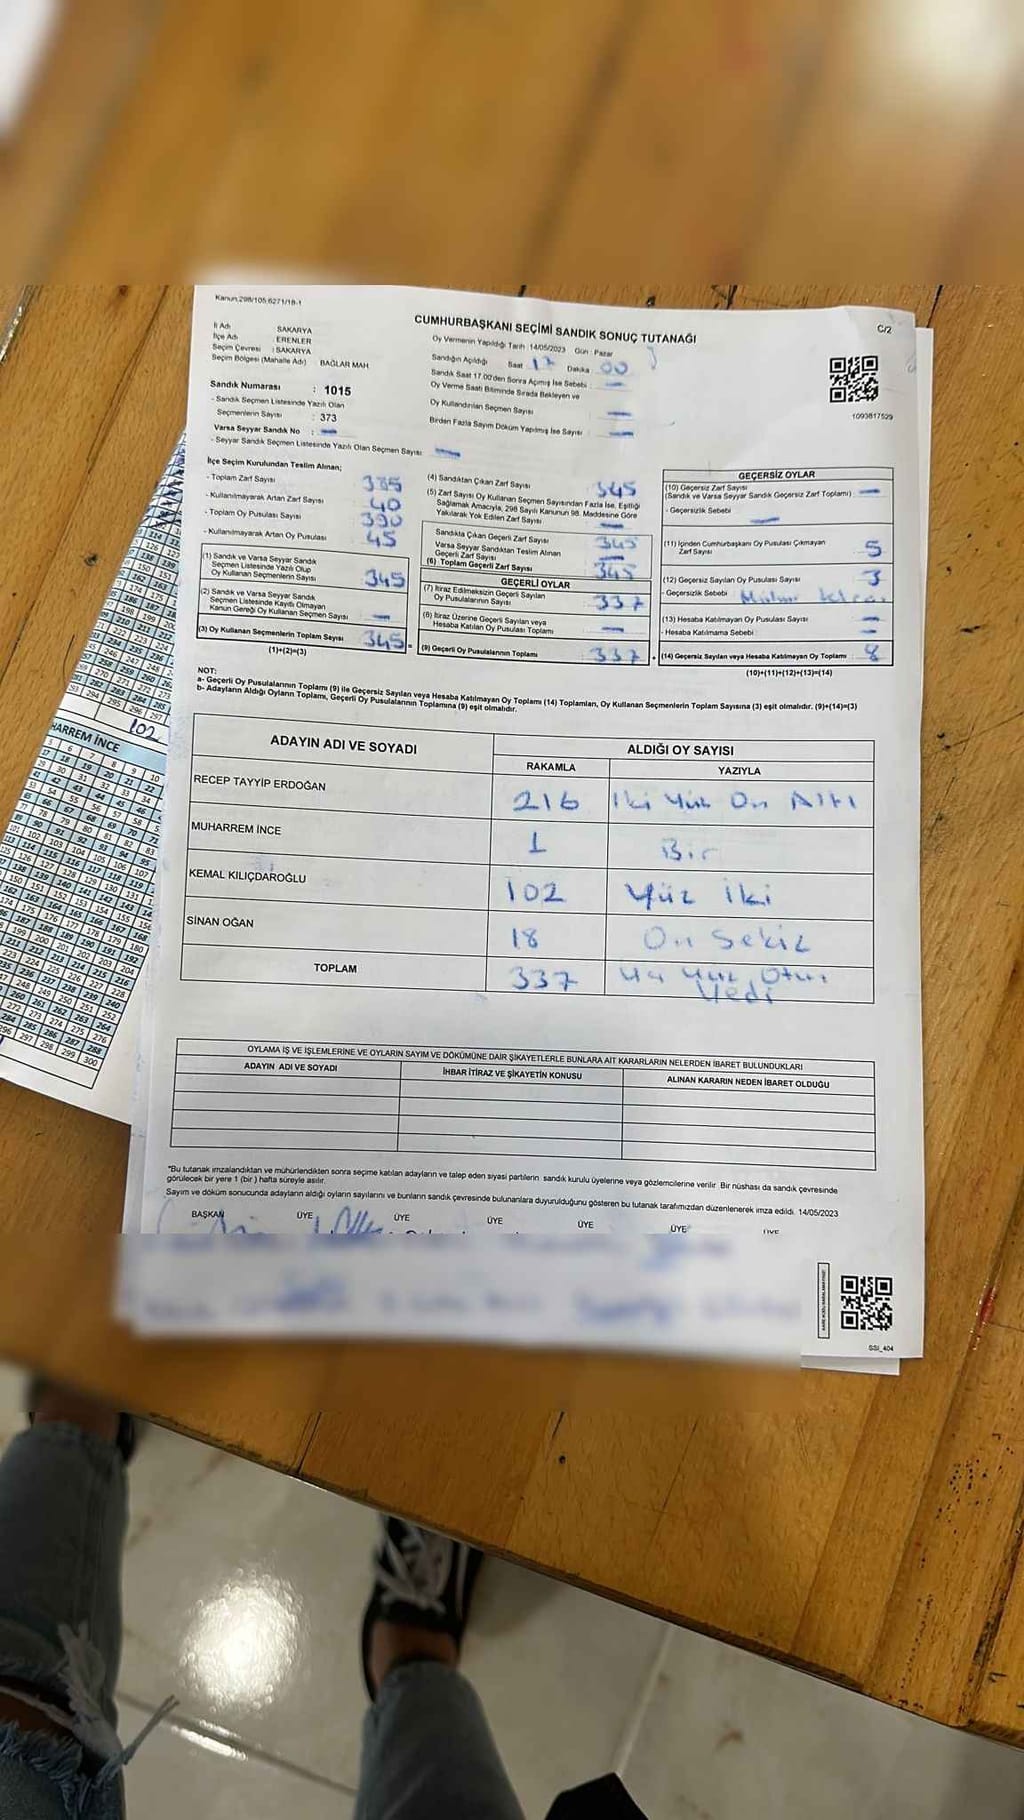 Kanun:298/105;6271/18-1
C/2
CUMHURBAŞKANI SEÇİMİ SANDIK SONUÇ TUTANAĞI
İl Adı SAKARYA
İlçe Adı ERENLER
Seçim Çevresi : SAKARYA
Seçim Bölgesi (Mahalle Adı) BAĞLAR MAH
Oy Vermenin Yapıldığı Tarih :14/05/2023 Gün : Pazar
Sandığın Açıldığı Saat 17 Dakika 00
Sandık Saat 17.00'den Sonra Açımış İse Sebebi : —
Oy Verme Saati Bitiminde Sırada Bekleyen ve
Oy Kullandırılan Seçmen Sayısı —
Birden Fazla Sayım Döküm Yapılmış İse Sayısı —
1093817529
Sandık Numarası : 1015
- Sandık Seçmen Listesinde Yazılı Olan
Seçmenlerin Sayısı : 373
Varsa Seyyar Sandık No : —
- Seyyar Sandık Seçmen Listesinde Yazılı Olan Seçmen Sayısı —
İlçe Seçim Kurulundan Teslim Alınan;
- Toplam Zarf Sayısı 385
- Kullanılmayarak Artan Zarf Sayısı 40
- Toplam Oy Pusulası Sayısı 390
- Kullanılmayarak Artan Oy Pusulası 45
(1) Sandık ve Varsa Seyyar Sandık
Seçmen Listesinde Yazılı Olup
Oy Kullanan Seçmenlerin Sayısı 345
(2) Sandık ve Varsa Seyyar Sandık
Seçmen Listesinde Kayıtlı Olmayan
Kanun Gereği Oy Kullanan Seçmen Sayısı —
(3) Oy Kullanan Seçmenlerin Toplam Sayısı 345
(1)+(2)=(3)
(4) Sandıktan Çıkan Zarf Sayısı 345
(5) Zarf Sayısı Oy Kullanan Seçmen Sayısından Fazla İse, Eşitliği
Sağlamak Amacıyla, 298 Sayılı Kanunun 98. Maddesine Göre
Yakılarak Yok Edilen Zarf Sayısı —
Sandıkta Çıkan Geçerli Zarf Sayısı 345
Varsa Seyyar Sandıktan Teslim Alınan
Geçerli Zarf Sayısı —
(6) Toplam Geçerli Zarf Sayısı 345
GEÇERLİ OYLAR
(7) İtiraz Edilmeksizin Geçerli Sayılan
Oy Pusulalarının Sayısı 337
(8) İtiraz Üzerine Geçerli Sayılan veya
Hesaba Katılan Oy Pusulası Toplamı —
(9) Geçerli Oy Pusulalarının Toplamı 337
GEÇERSİZ OYLAR
(10) Geçersiz Zarf Sayısı
(Sandık ve Varsa Seyyar Sandık Geçersiz Zarf Toplamı) —
- Geçersizlik Sebebi —
(11) İçinden Cumhurbaşkanı Oy Pusulası Çıkmayan
Zarf Sayısı 5
(12) Geçersiz Sayılan Oy Pusulası Sayısı 3
- Geçersizlik Sebebi
(13) Hesaba Katılmayan Oy Pusulası Sayısı —
- Hesaba Katılmama Sebebi : —
(14) Geçersiz Sayılan veya Hesaba Katılmayan Oy Toplamı 8
(10)+(11)+(12)+(13)=(14)
NOT:
a- Geçerli Oy Pusulalarının Toplamı (9) ile Geçersiz Sayılan veya Hesaba Katılmayan Oy Toplamı (14) Toplamları, Oy Kullanan Seçmenlerin Toplam Sayısına (3) eşit olmalıdır. (9)+(14)=(3)
b- Adayların Aldığı Oyların Toplamı, Geçerli Oy Pusulalarının Toplamına (9) eşit olmalıdır.
ADAYIN ADI VE SOYADI ALDIĞI OY SAYISI
RAKAMLA YAZIYLA
RECEP TAYYİP ERDOĞAN 216 İki Yüz On Altı
MUHARREM İNCE 1 Bir
KEMAL KILIÇDAROĞLU 102 Yüz İki
SİNAN OĞAN 18 On Sekiz
TOPLAM 337 Üç Yüz Otuz
Yedi
OYLAMA İŞ VE İŞLEMLERİNE VE OYLARIN SAYIM VE DÖKÜMÜNE DAİR ŞİKAYETLERLE BUNLARA AİT KARARLARIN NELERDEN İBARET BULUNDUKLARI
ADAYIN ADI VE SOYADI İHBAR İTİRAZ VE ŞİKAYETİN KONUSU ALINAN KARARIN NEDEN İBARET OLDUĞU
*Bu tutanak imzalandıktan ve mühürlendikten sonra seçime katılan adayların ve talep eden siyasi partilerin sandık kurulu üyelerine veya gözlemcilerine verilir. Bir nüshası da sandık çevresinde
görülecek bir yere 1 (bir) hafta süreyle asılır.
Sayım ve döküm sonucunda adayların aldığı oyların sayılarını ve bunların sandık çevresinde bulunanlara duyurulduğunu gösteren bu tutanak tarafımızdan düzenlenerek imza edildi. 14/05/2023
BAŞKAN ÜYE ÜYE ÜYE ÜYE ÜYE ÜYE
SSİ_404
102
HARREM İNCE